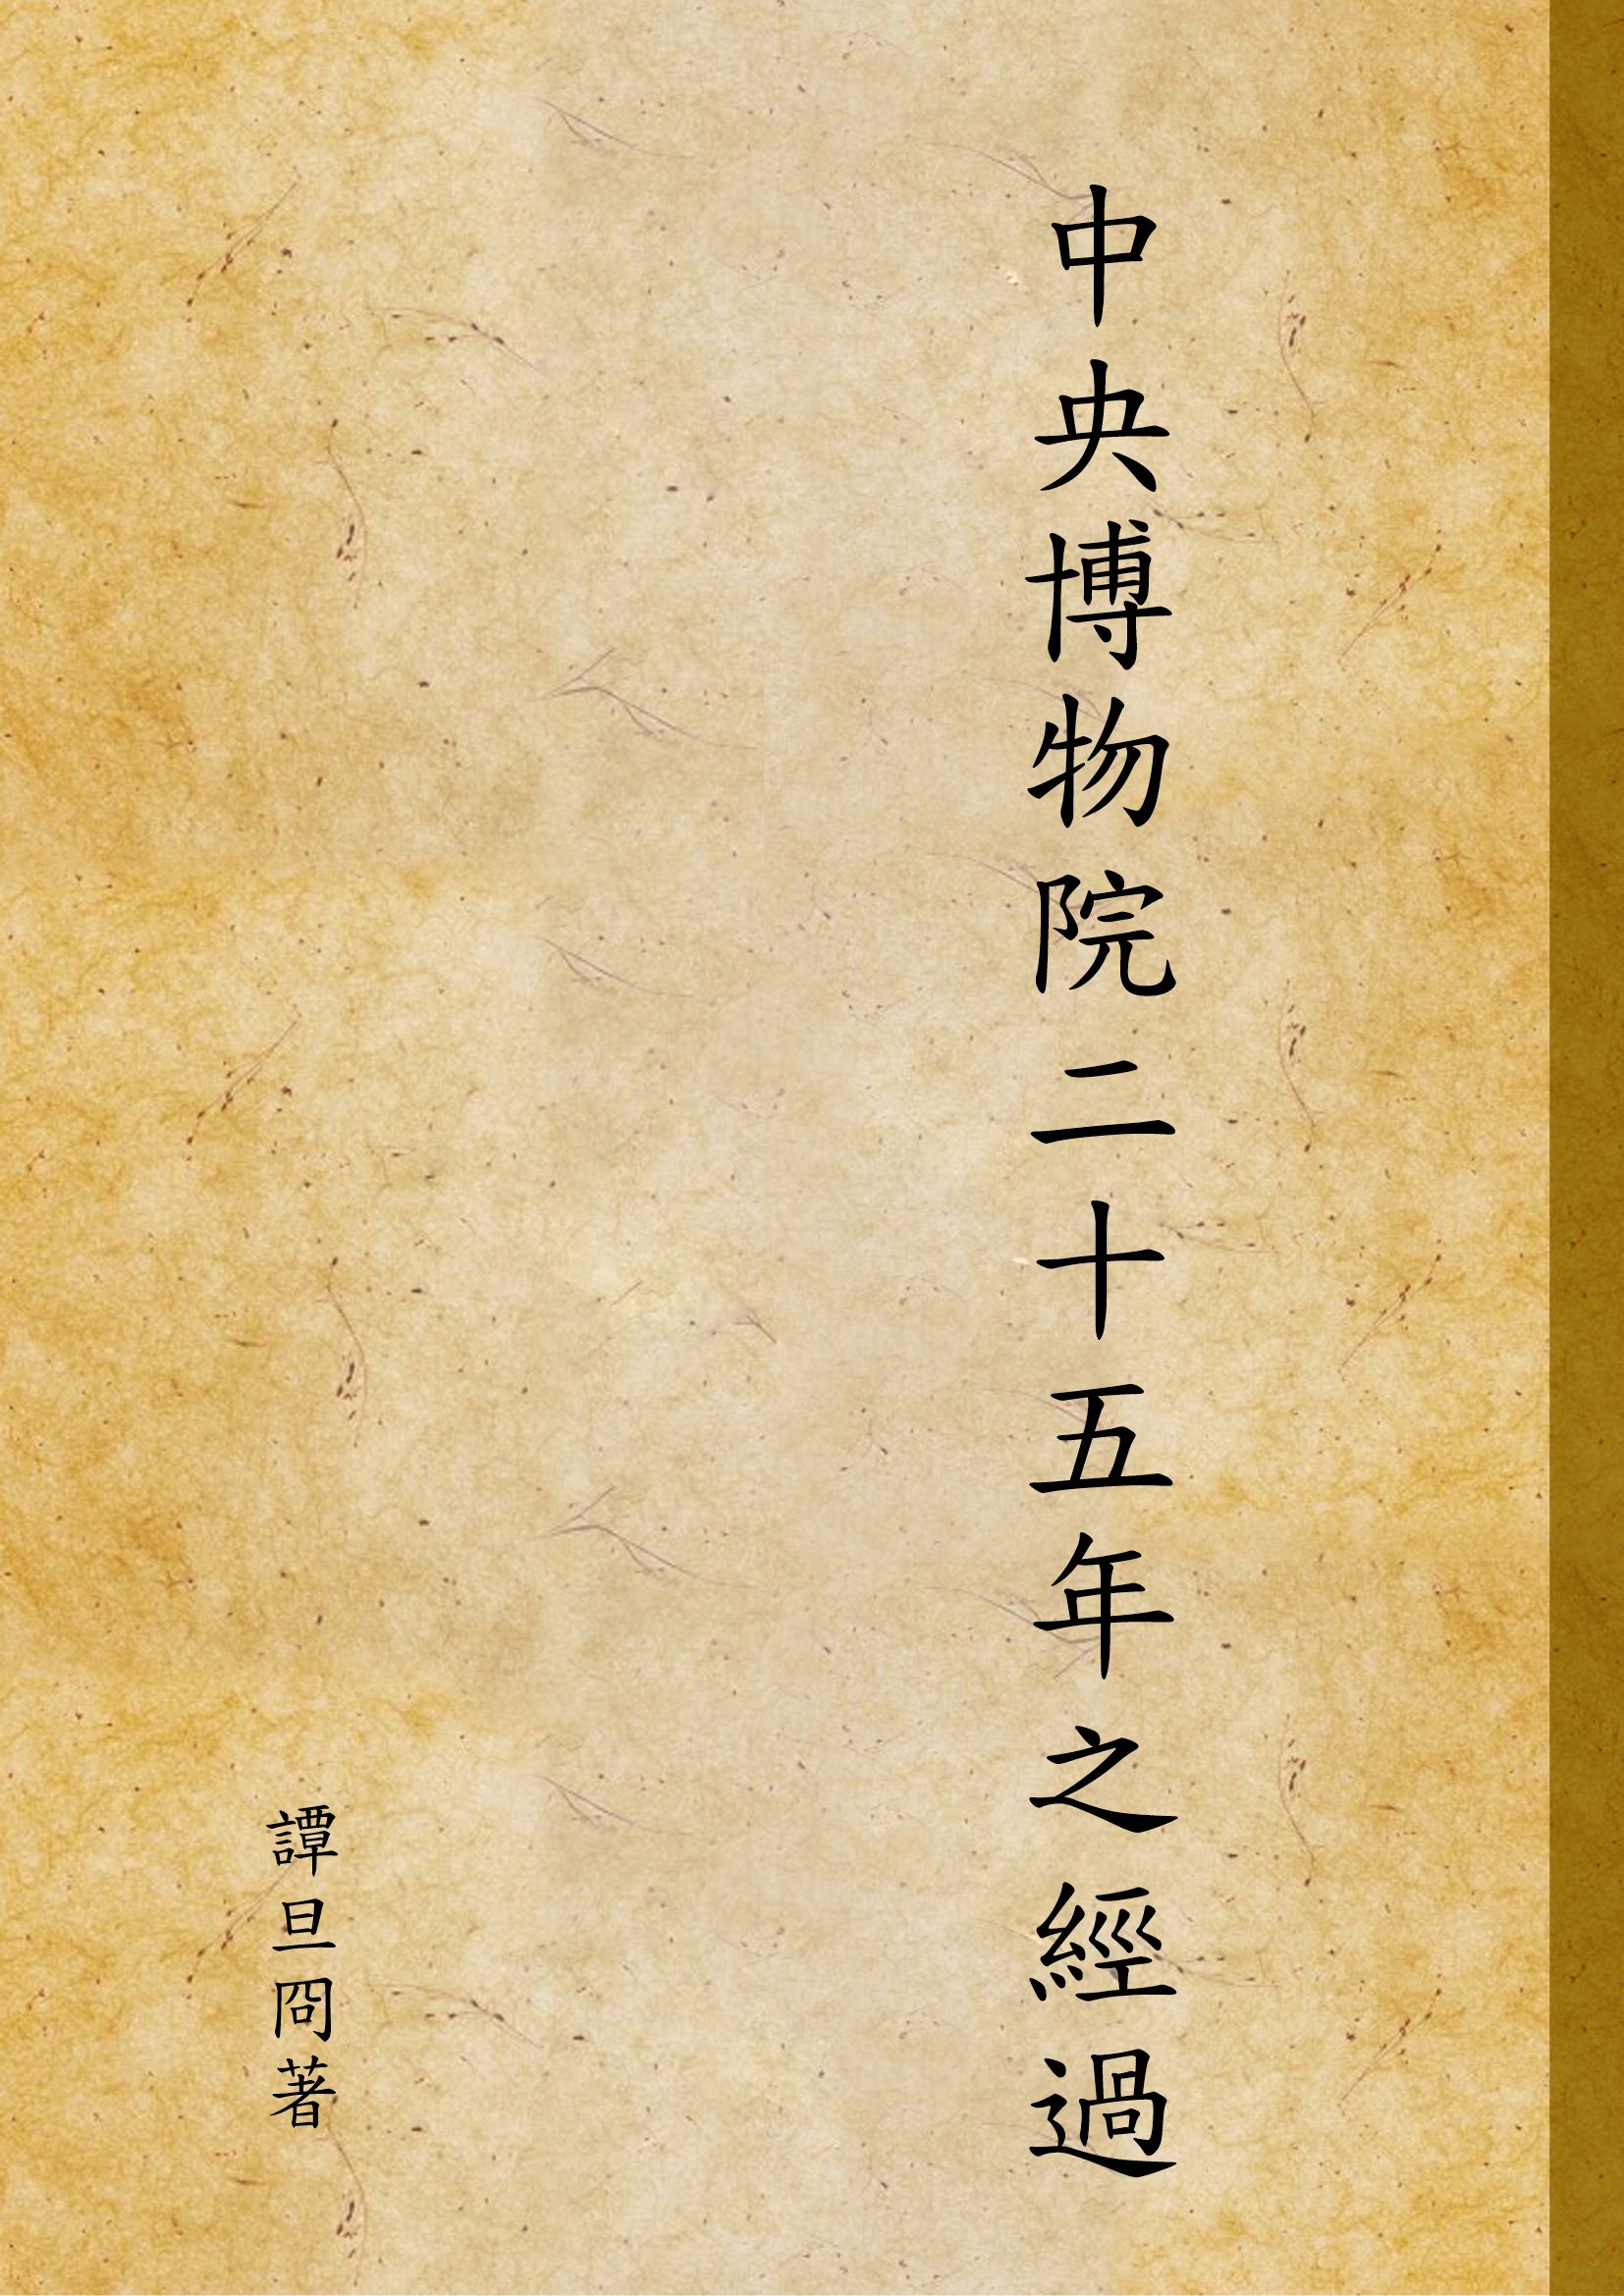 中央博物院二十五年之經過
譚旦冏著